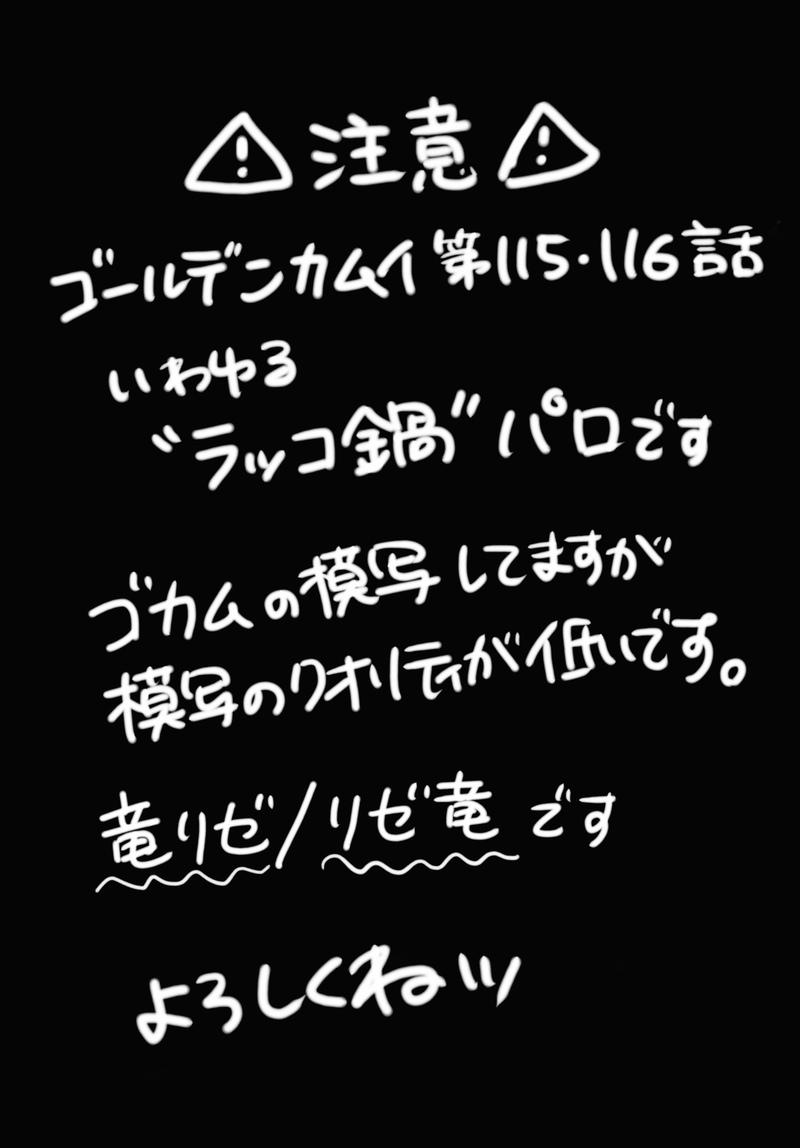 ⚠注意⚠
ゴールデンカムイ第115・116話
いわゆる
"ラッコ鍋"パロです
ゴカムの模写してますが
模写のクオリティが低いです。
竜リゼ/リゼ竜です
よろしくねッ